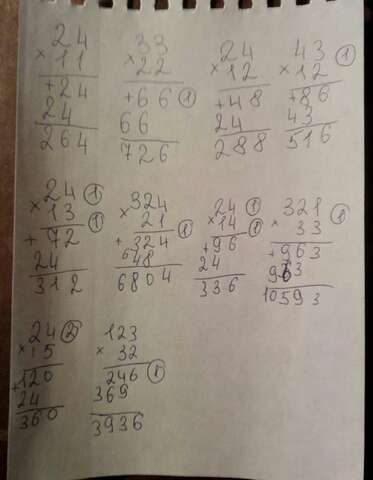 24 33 24 43 ①
× 11 × 22 × 12 × 12
+24 +66 ① +48 +86
24 66 24 43
264 726 288 516
24 ① 324 24 ① 321
× 13 ① × 21 × 14 ① × 33 ①
+ 72 + 324 +96 +963
24 648 24 963
312 6804 336 10593
24 ② 123
× 15 × 32
+120 246 ①
24 369
360 3936